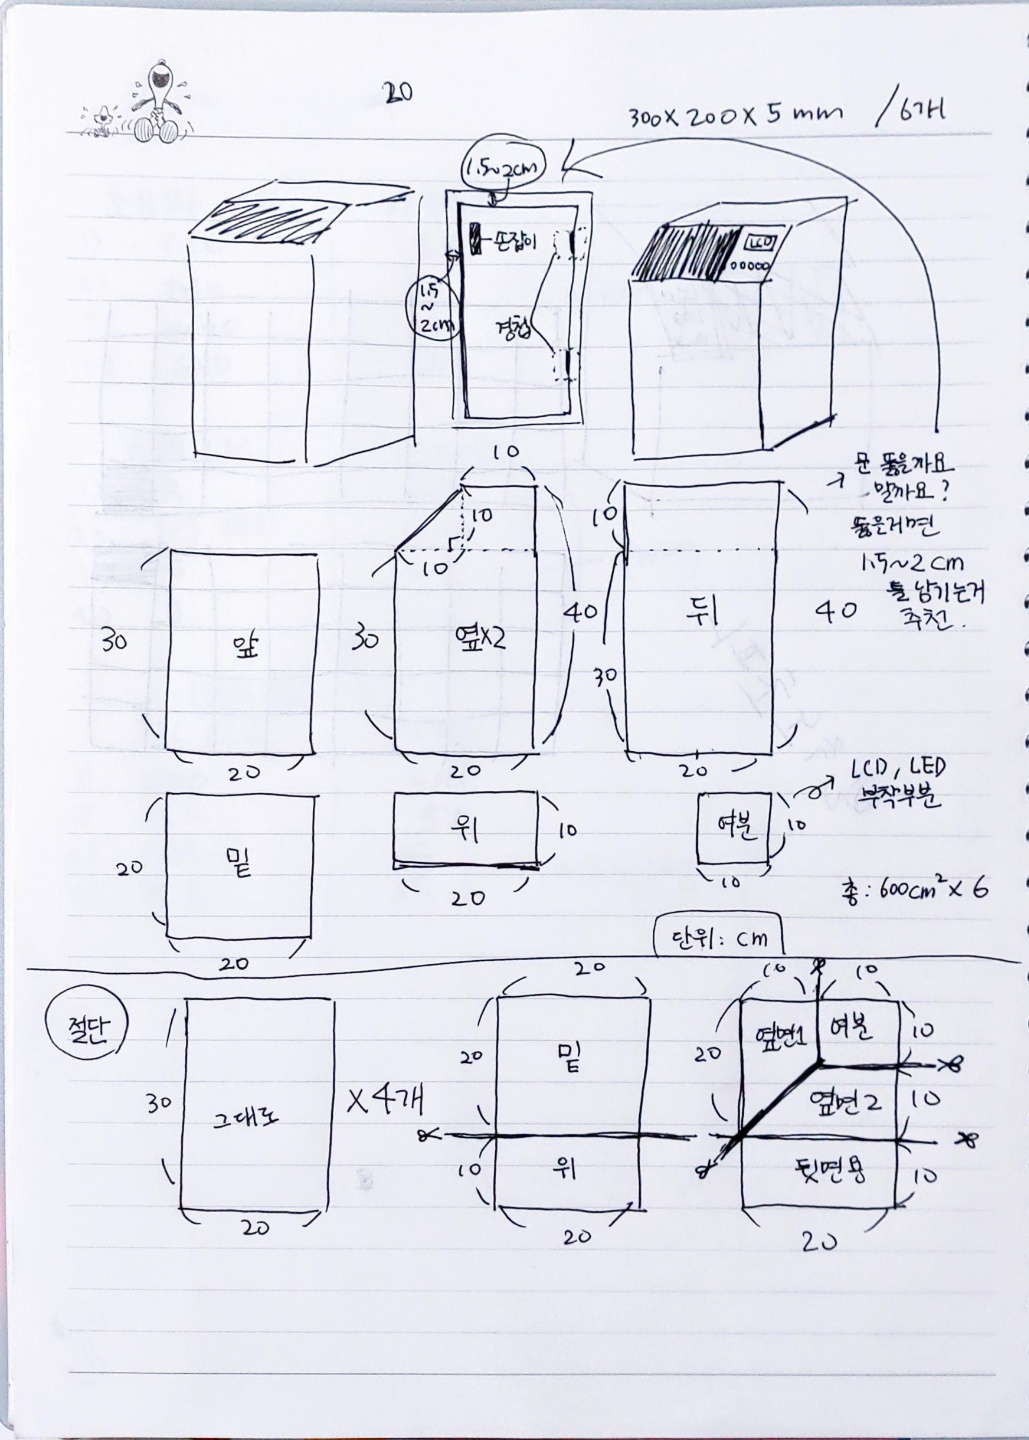 20
300 x 200 x 5 mm / 6개
1.5~2cm
손잡이
1.5
~
2cm
경첩
LCD
문 뚫을까요
말까요?
뚫을거면
1.5~2 cm
틀 남기는거
추천.
30
앞
20
10
10
10
30
옆x2
40
20
10
30
뒤
40
20
20
밑
20
위
10
20
여분
10
10
LCD, LED
부착부분
총: 600cm² x 6
단위: cm
절단
30
그대로
20
x 4개
20
20
밑
10
위
20
10
10
20
옆면1
여분
10
옆면2
10
뒷면용
10
20